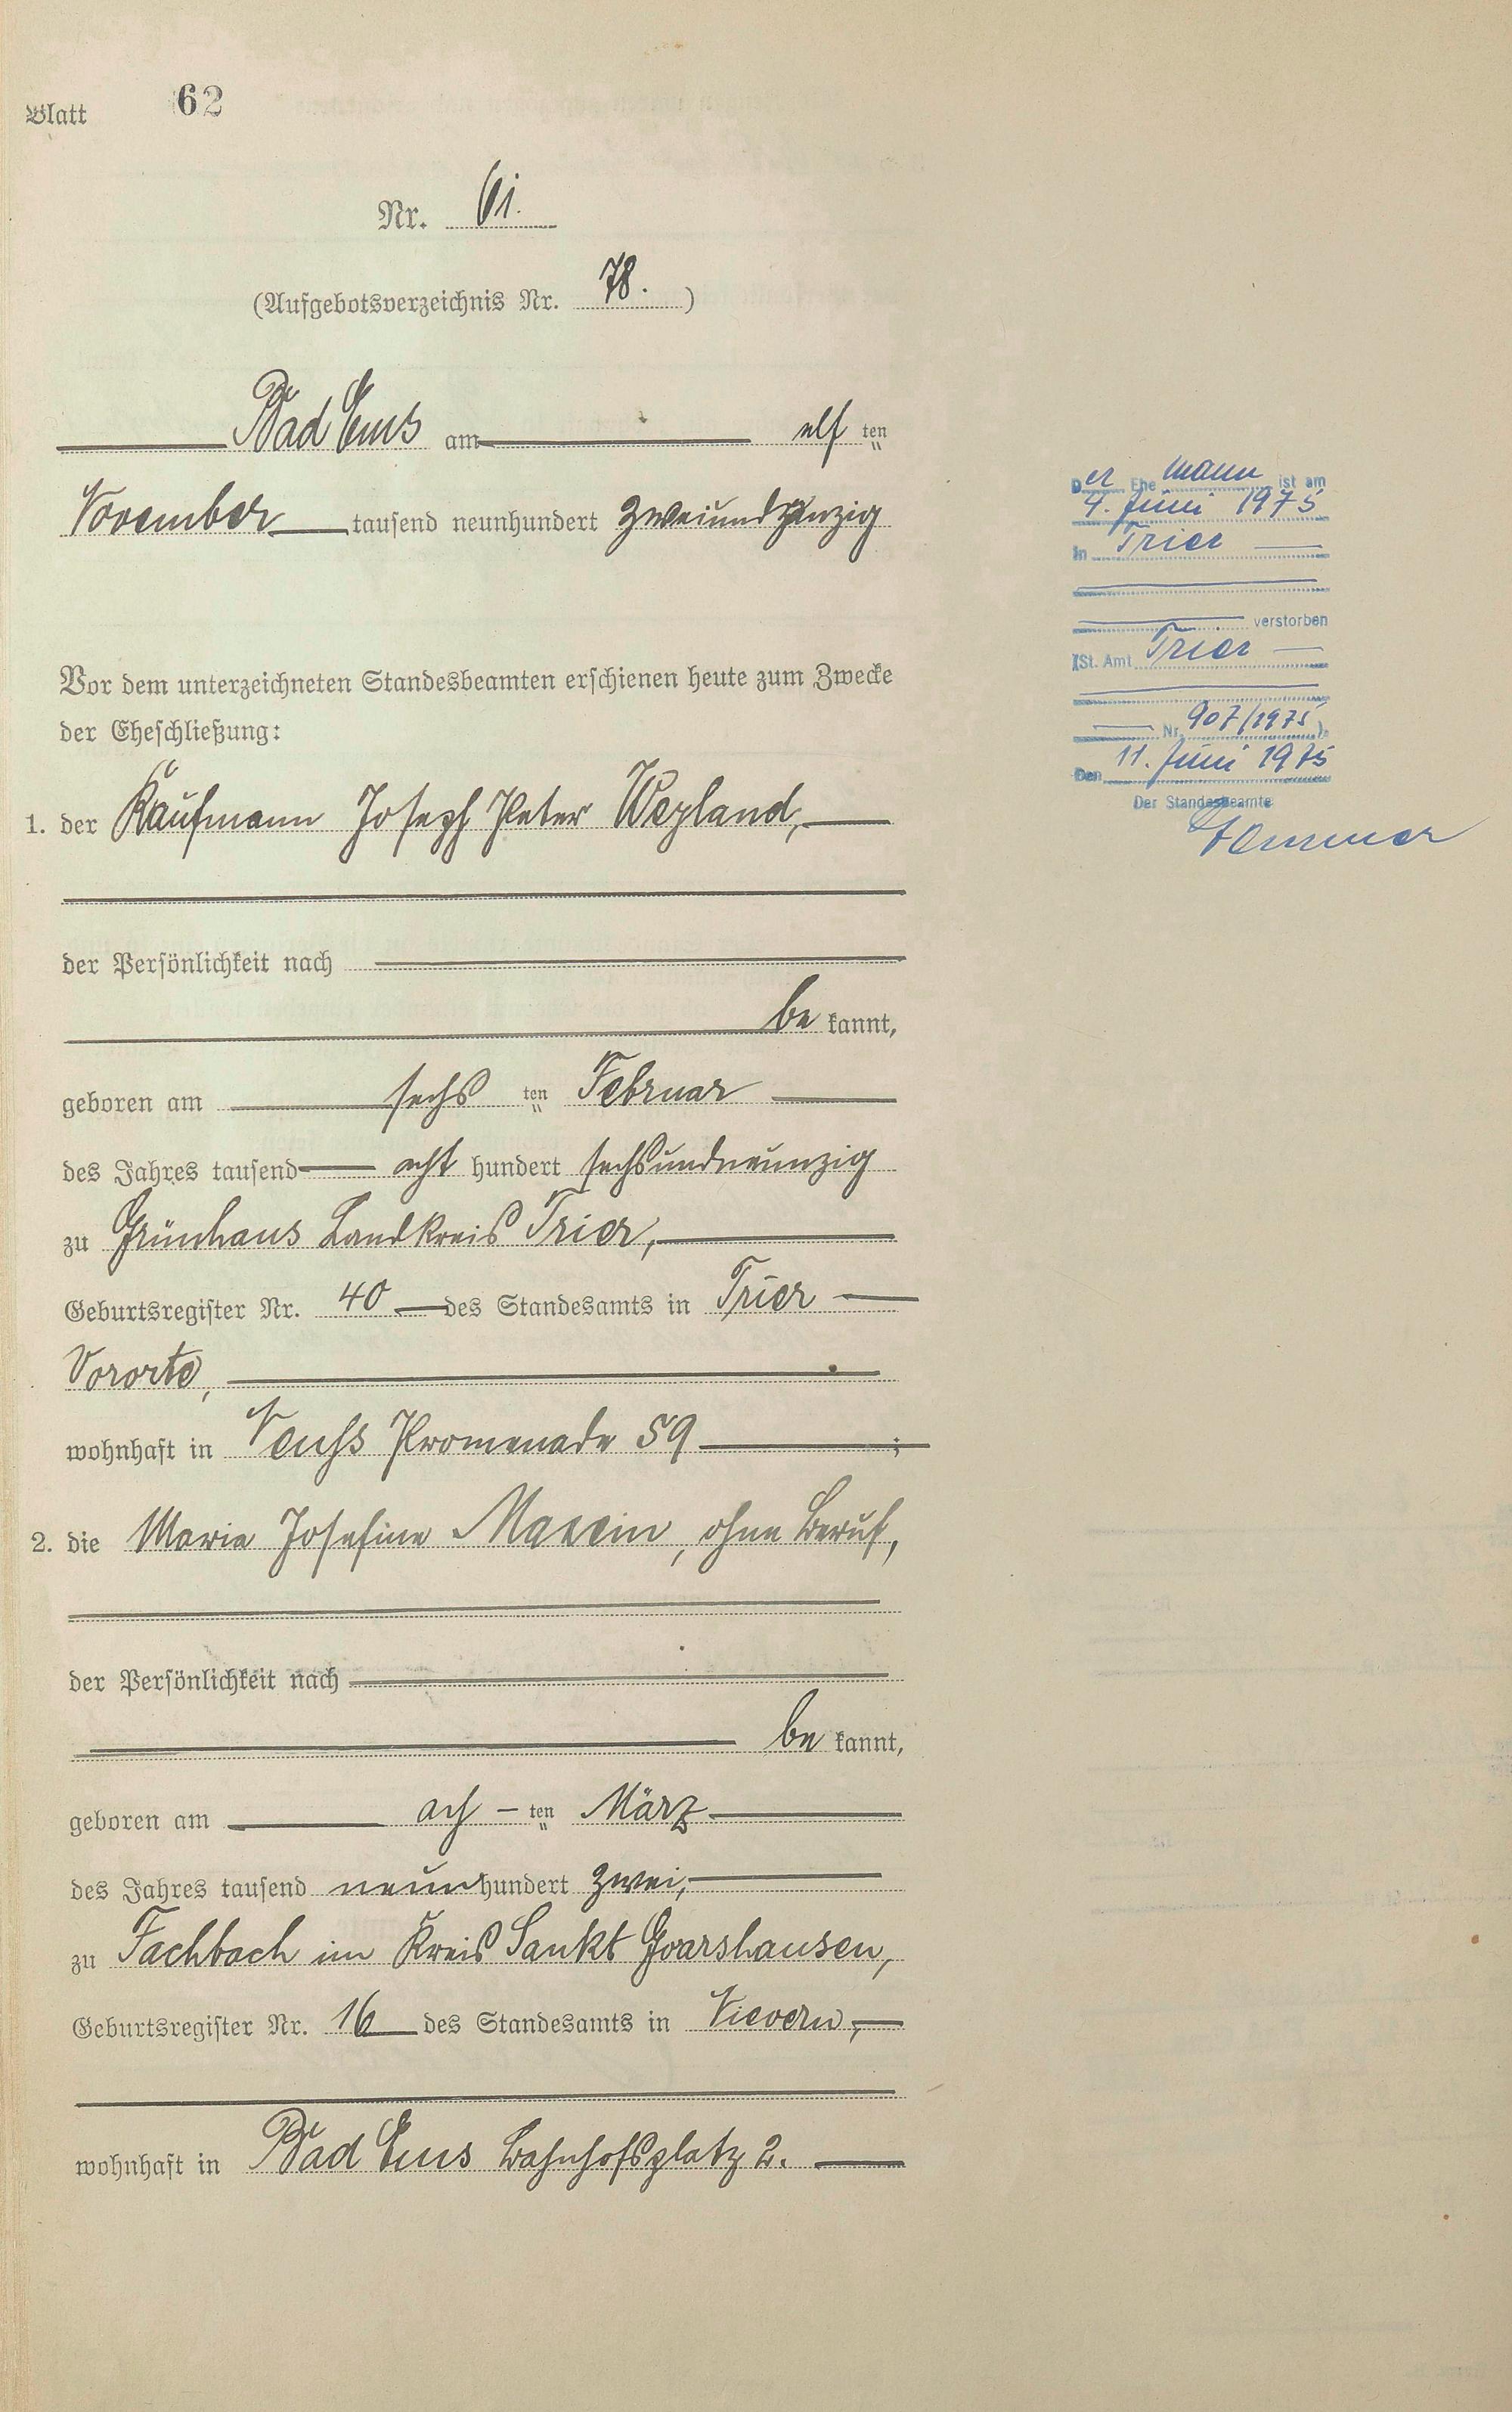 Blatt 62
Nr. 61.
(Aufgebotsverzeichnis Nr. 78.)
Bad Ems am elf ten
November tausend neunhundert zweiundzwanzig
Vor dem unterzeichneten Standesbeamten erschienen heute zum Zwecke
der Eheschließung:
1. der Kaufmann Joseph Peter Weyland,
der Persönlichkeit nach
be kannt,
geboren am sechs ten Februar
des Jahres tausend acht hundert sechsundneunzig
zu Grünhaus Landkreis Trier,
Geburtsregister Nr. 40 des Standesamts in Trier
Vororte,
wohnhaft in Neuss Promenade 59 ;
2. die Maria Josefine Massin, ohne Beruf,
der Persönlichkeit nach
be kannt,
geboren am ach - ten März
des Jahres tausend neun hundert zwei,
zu Fachbach im Kreis Sankt Goarshausen,
Geburtsregister Nr. 16 des Standesamts in Nievern,
wohnhaft in Bad Ems Bahnhofsplatz 2.
Der Ehe mann ist am
4. Juni 1975
in Trier
verstorben
(St. Amt Trier
Nr. 907/1975).
Den 11. Juni 1975
Der Standesbeamte